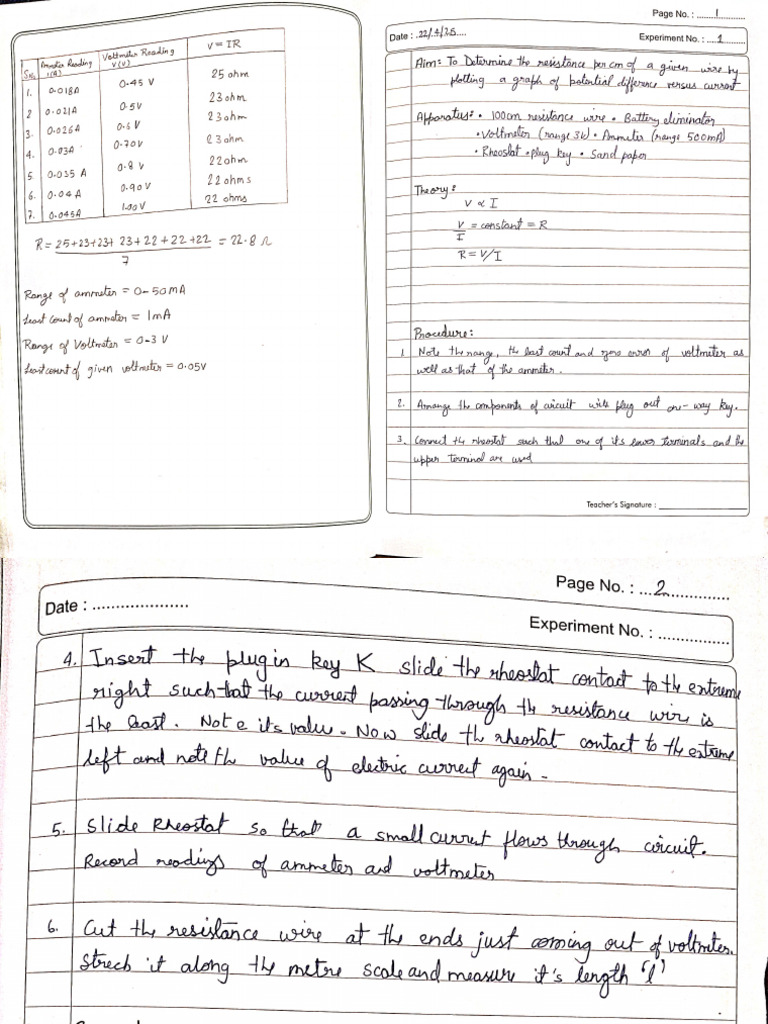 S.No. Ammeter Reading I(A) Voltmeter Reading V(V) V = IR
1. 0.018A 0.45 V 25 ohm
2 0.021A 0.5V 23 ohm
3. 0.026A 0.6 V 23 ohm
4. 0.03A 0.70V 23 ohm
5 0.035 A 0.8 V 22 ohm
6. 0.04 A 0.90 V 22 ohms
7. 0.045A 1.00 V 22 ohms
R = 25+23+23+ 23+22+22+22 = 22.8 Ω
7
Range of ammeter = 0-50mA
Least count of ammeter = 1mA
Range of Voltmeter = 0-3 V
Least count of given voltmeter = 0.05V
Page No. : 1
Date : 22/4/25 Experiment No. : 1
Aim: To Determine the resistance per cm of a given wire by
plotting a graph of potential difference versus current
Apparatus: • 100cm resistance wire • Battery eliminator
• Voltmeter (range 3V) • Ammeter (range 500mA)
• Rheostat • plug key • Sand paper
Theory:
V ∝ I
V/I = constant = R
R = V/I
Procedure:
1 Note the range, the least count and zero error of voltmeter as
well as that of the ammeter.
2. Arrange the components of circuit with plug out one-way key.
3. Connect the rheostat such that one of its lower terminals and the
upper terminal are used
Teacher's Signature :
Page No. : 2
Date :
Experiment No. :
4. Insert the plug in key K slide the rheostat contact to the extreme
right such that the current passing through the resistance wire is
the least. Note it's value. Now slide the rheostat contact to the extreme
left and note th value of electric current again.
5. Slide Rheostat so that a small current flows through circuit.
Record readings of ammeter and voltmeter
6. Cut the resistance wire at the ends just coming out of voltmeter.
strech it along the metre scale and measure it's length 'l'